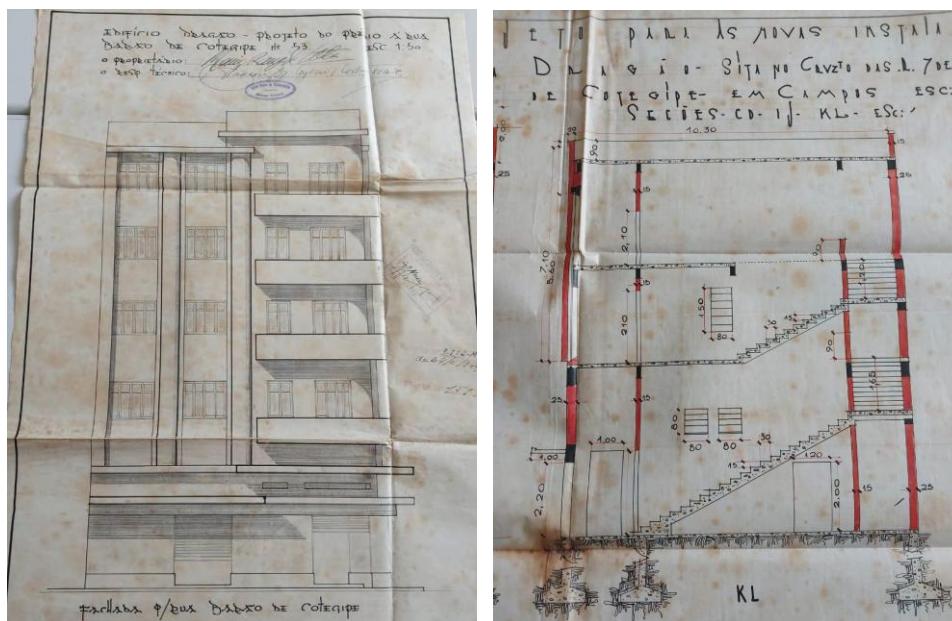 EDIFÍCIO DRAGÃO - PROJETO DO PREDIO À RUA
BARÃO DE COTEGIPE Nº 53 ESC 1:50
O PROPRIETÁRIO:
O RESP TÉCNICO:
FACHADA P/RUA BARÃO DE COTEGIPE
JETO PARA ÀS NOVAS INSTALA
DRAGÃO - SITA NO CRUZTO DAS R. 7 DE
DE COTEGIPE - EM CAMPOS ESC:
SECÇÕES - CD - IJ - KL - ESC:
10.30
20
90
15
25
15
25
2,10
7,10
5,60
90
15
120
150
80
210
15
30
90
165
25
15
80
80
80
1,00
1,00
30
15
120
2,20
2,00
15
25
KL